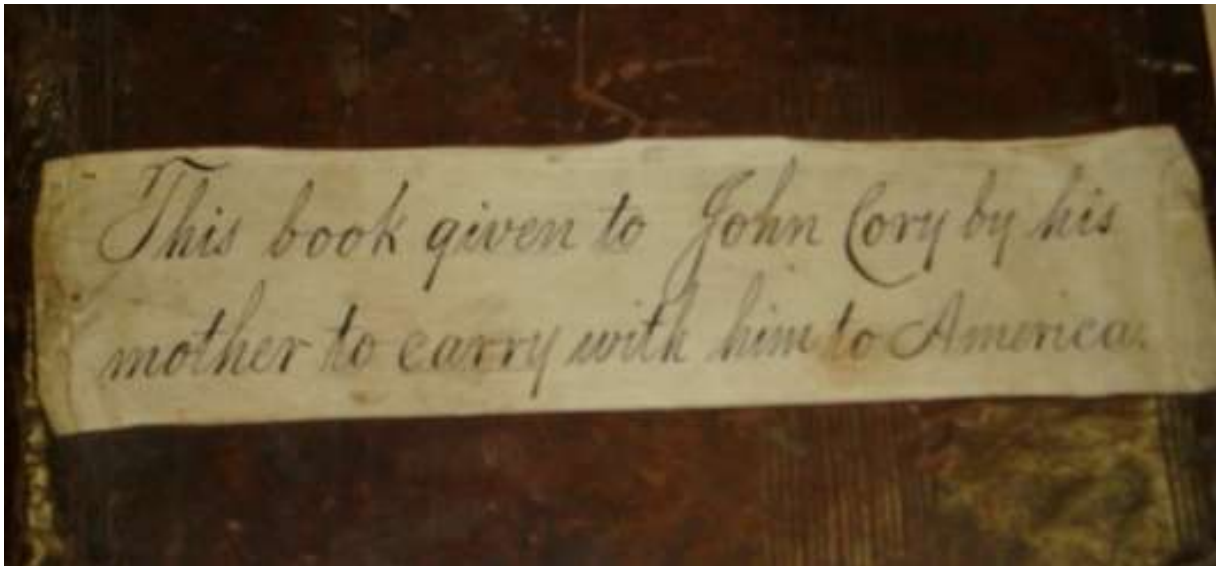 This book given to John Cory by his
mother to carry with him to America.